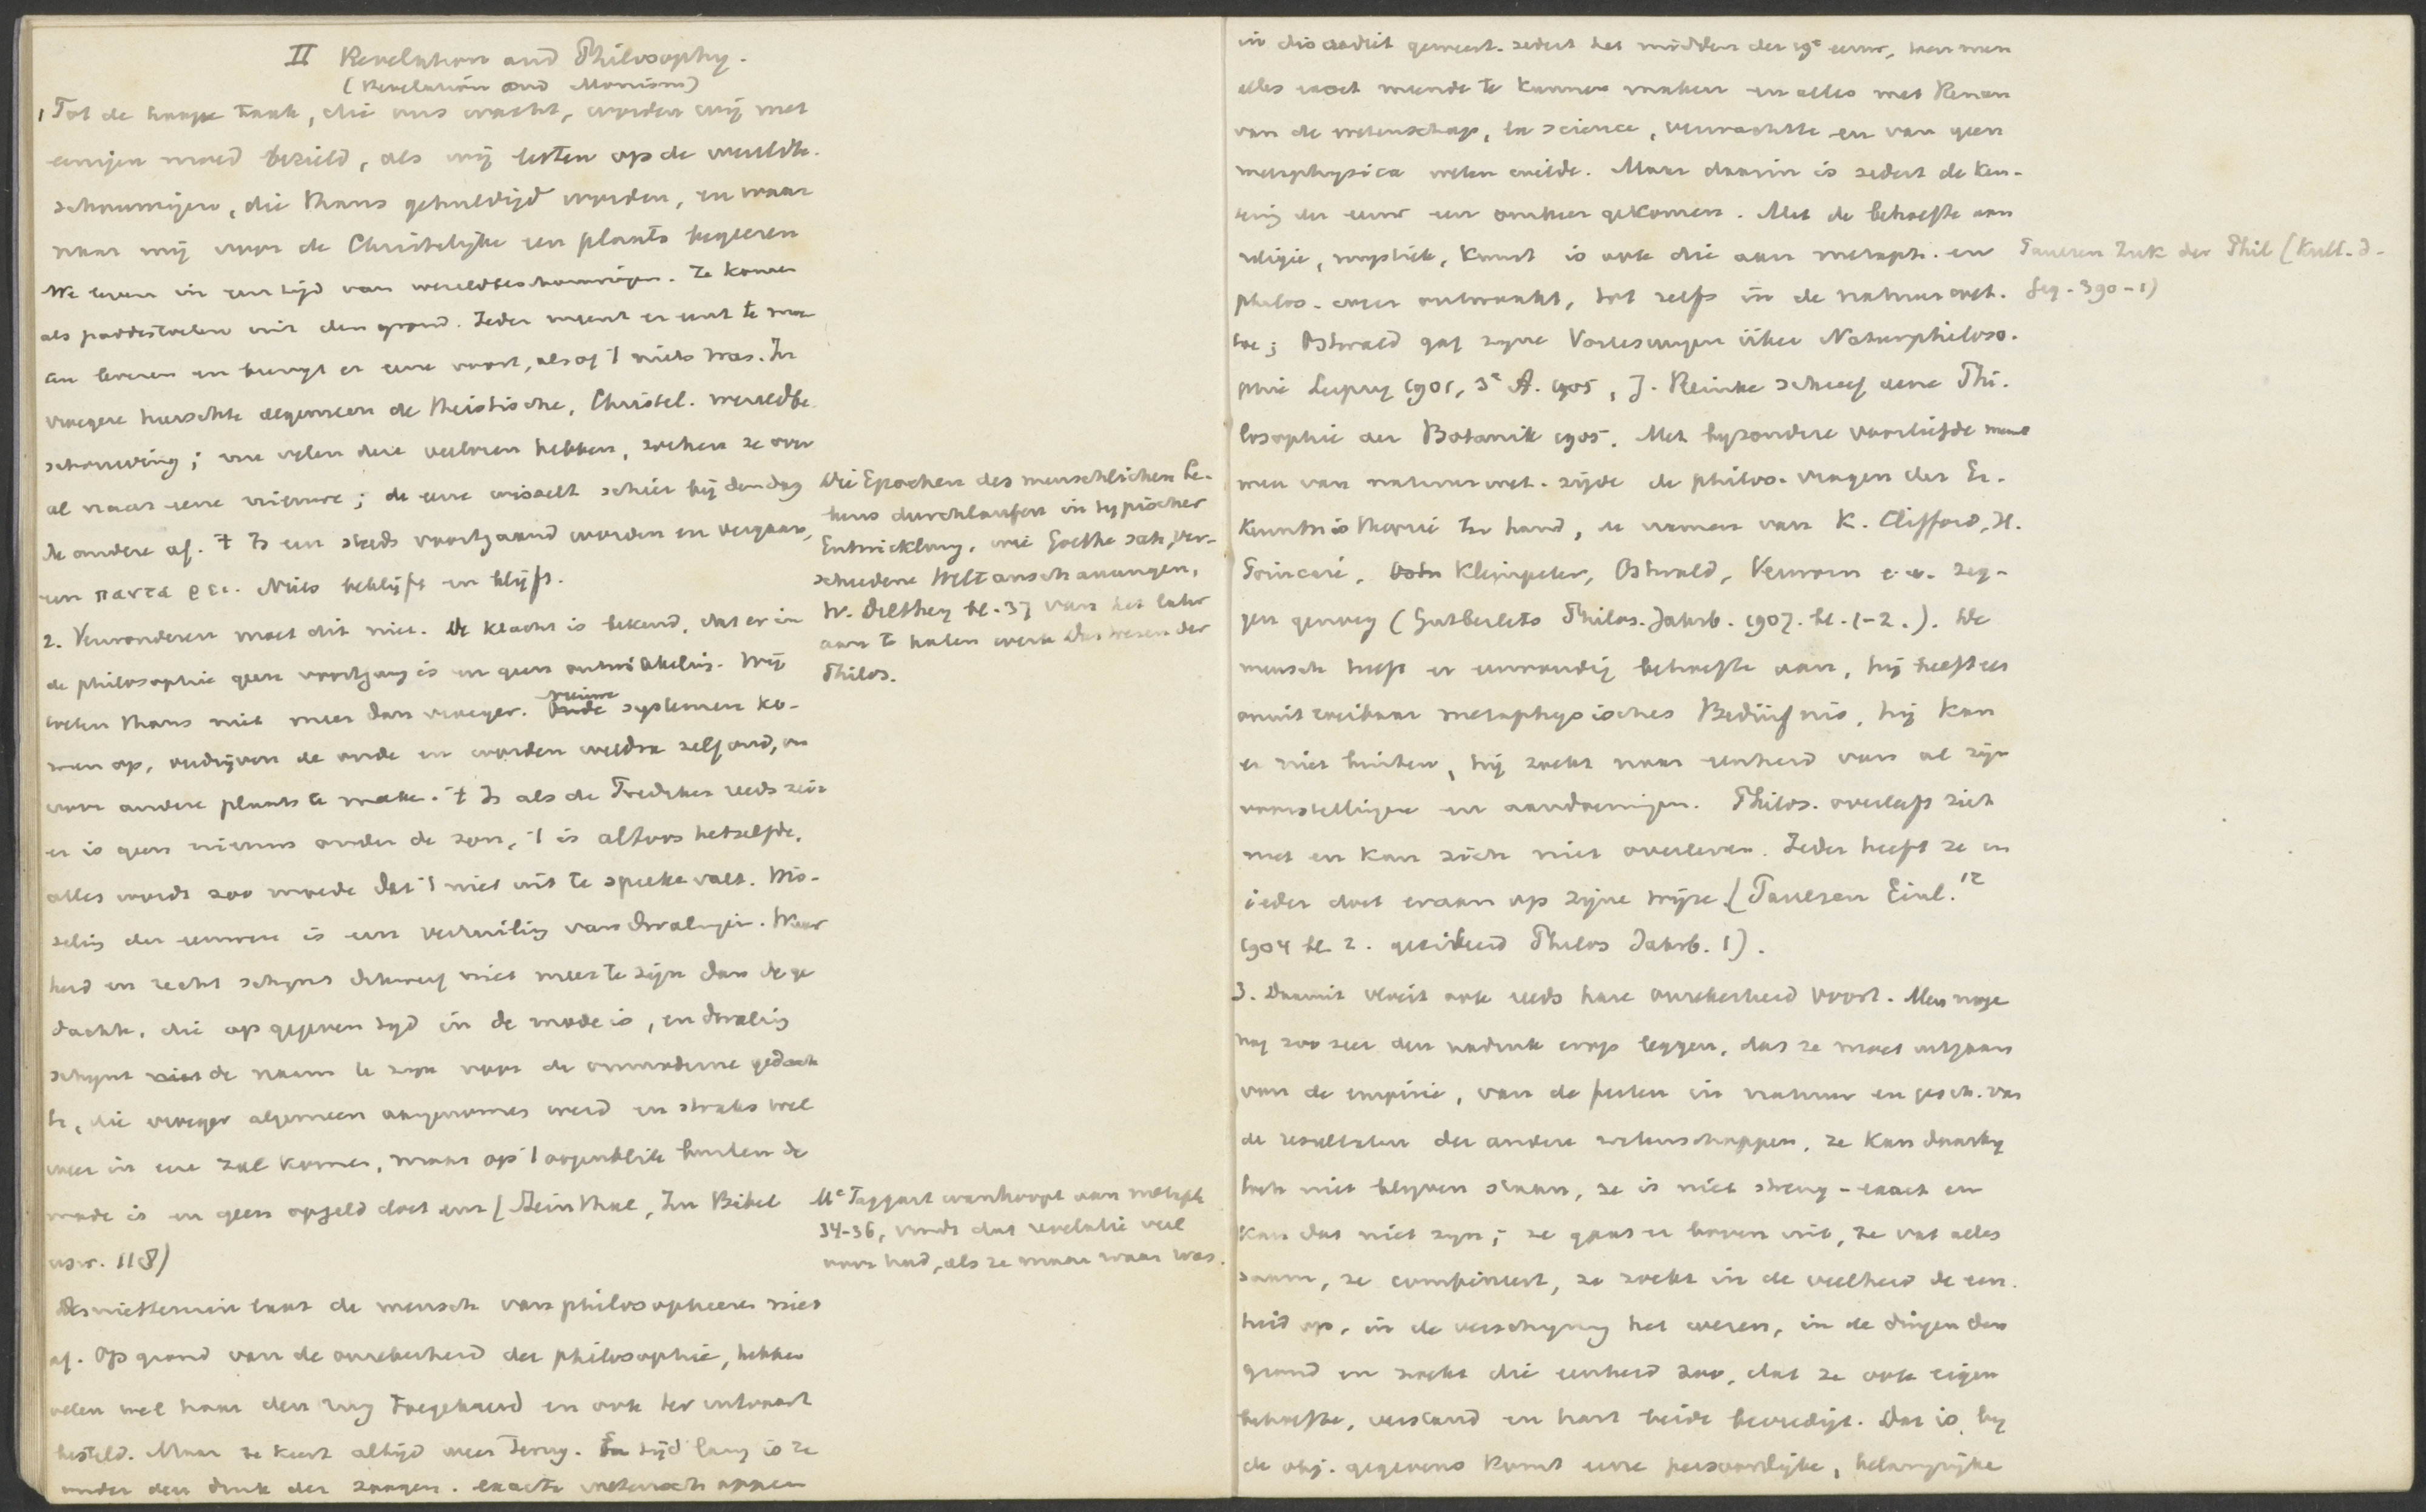 II Revelation and Philosophy.
(Revelation and Monism)
1 Tot de hooge taak, die ons wacht, worden wij met
eenigen moed bezield, als wij letten op de wereldbe-
schouwingen, die thans gehuldigd worden, en waar
naar wij voor de Christelijke een plaats begeeren
We leven in een tijd van wereldbeschouwingen. Ze komen
als paddestoelen uit den grond. Ieder meent er eene te moe
ten leveren en brengt er eene voort, alsof 't niets was. In
vroegere heerschte algemeen de theistische, Christel. wereldbe
schouwing; nu velen deze verloren hebben, zoeken ze over
al naar eene nieuwe; de eene wisselt schier bij den dag
de andere af. 't Is een steeds voortgaand worden en vergaan,
een παντα ρει. Niets beklijft en blijft.
2. Verwonderen moet dit niet. De klacht is bekend, dat er in
de philosophie geen voortgang is en geen ontwikkeling. Wij
weten thans niet meer dan vroeger. Oude nieuwe systemen ko-
men op, verdrijven de oude en worden weldra zelf oud, om
voor andere plaats te make. 't Is als de Prediker reeds zeide
er is geen nieuws onder de zon, 't is altoos hetzelfde,
alles wordt zoo moede dat 't niet uit te spreke valt. Wis-
seling der eeuwen is een verruiling van dwalingen. Waar
heid en recht schijnt dikwerf niet meer te zijn dan de ge
dachte, die op gegeven tijd in de mode is, en dwaling
schijnt niet de naam te zijn voor de onmoderne gedach
te, die vroeger algemeen aangenomen werd en straks wel
weer in eere zal komen, maar op 't oogenblik buiten de
mode is en geen opgeld doet enz (Steinthal, Zu Bibel
usw. 118)
Desniettemin laat de mensch van philosopheeren niet
af. Op grond van de onzekerheid der philosophie, hebben
velen wel haar den rug toegekeerd en ook ter
besteld. Maar ze keert altijd weer terug. Een tijd lang is ze
onder den druk der zoogen. exacte wetenschappen
Die Epochen des menschlichen Le-
bens durchlaufen in typischer
Entwicklung, wie Goethe sah, ver-
schiedene Weltanschauungen,
W. Dilthey bl. 37 van het later
aan te halen werk Das Wesen der
Philos.
McTaggart wanhoopt aan metaph
34-36, vindt dat revelatie veel
voor had, als ze maar waar was.
in discrediet geweest. sedert het midden der 19e eeuw, toen men
alles exact meende te kunnen maken en alles met Renan
van de wetenschap, la science, verwachtte en van geen
metaphysica weten wilde. Maar daarin is sedert de ken-
tering der eeuw een omkeer gekomen. Met de behoefte aan
religie, mystiek, kunst is ook die aan metaph. en
philos. weer ontwaakt, tot zelfs in de natuurwet.
toe; Ostwald gaf zijne Vorlesungen über Naturphiloso-
phie Leipzig 1901, 3e A. 1905, J. Reinke schreef eene Phi-
losophie der Botanik 1905. Met bijzondere voorliefde neemt
men van natuurwet. zijde de philos. vragen der Er-
kenntnistheorie ter hand, de namen van K. Clifford, H.
Poincaré, Kleinpeter, Ostwald, Verworn e.a. zeg-
gen genoeg (Gutberlets Philos. Jahrb. 1907. bl. 1-2.). De
mensch heeft er eenvoudig behoefte aan, hij heeft een
onuitroeibaar metaphysisches Bedürfnis, hij kan
er niet buiten, hij zoekt naar eenheid van al zijn
voorstellingen en aandoeningen. Philos. overleeft zich
niet en kan zich niet overleven. Ieder heeft ze en
ieder doet eraan op zijne wijze (Paulsen Einl.12
1904 bl. 2. geciteerd Philos Jahrb. 1).
3. Daaruit vloeit ook reeds hare onzekerheid voort. Men moge
nog zoo zeer den nadruk erop leggen, dat ze moet uitgaan
van de empirie, van de feiten in natuur en gesch. van
de resultaten der andere wetenschappen, ze kan daarbij
toch niet blijven staan, ze is niet streng-exact en
kan dat niet zijn; ze gaat er boven uit, ze vat alles
saam, ze combineert, ze zoekt in de veelheid de een-
heid op, in de verschijning het wezen, in de dingen den
grond en zoekt die eenheid zoo, dat ze ook eigen
behoefte, verstand en hart beide bevredigt. Dat is, bij
de obj. gegevens komt eene persoonlijke, belangrijke
Paulsen Zuk der Phil (Kult. d.
Geg. 390-1)